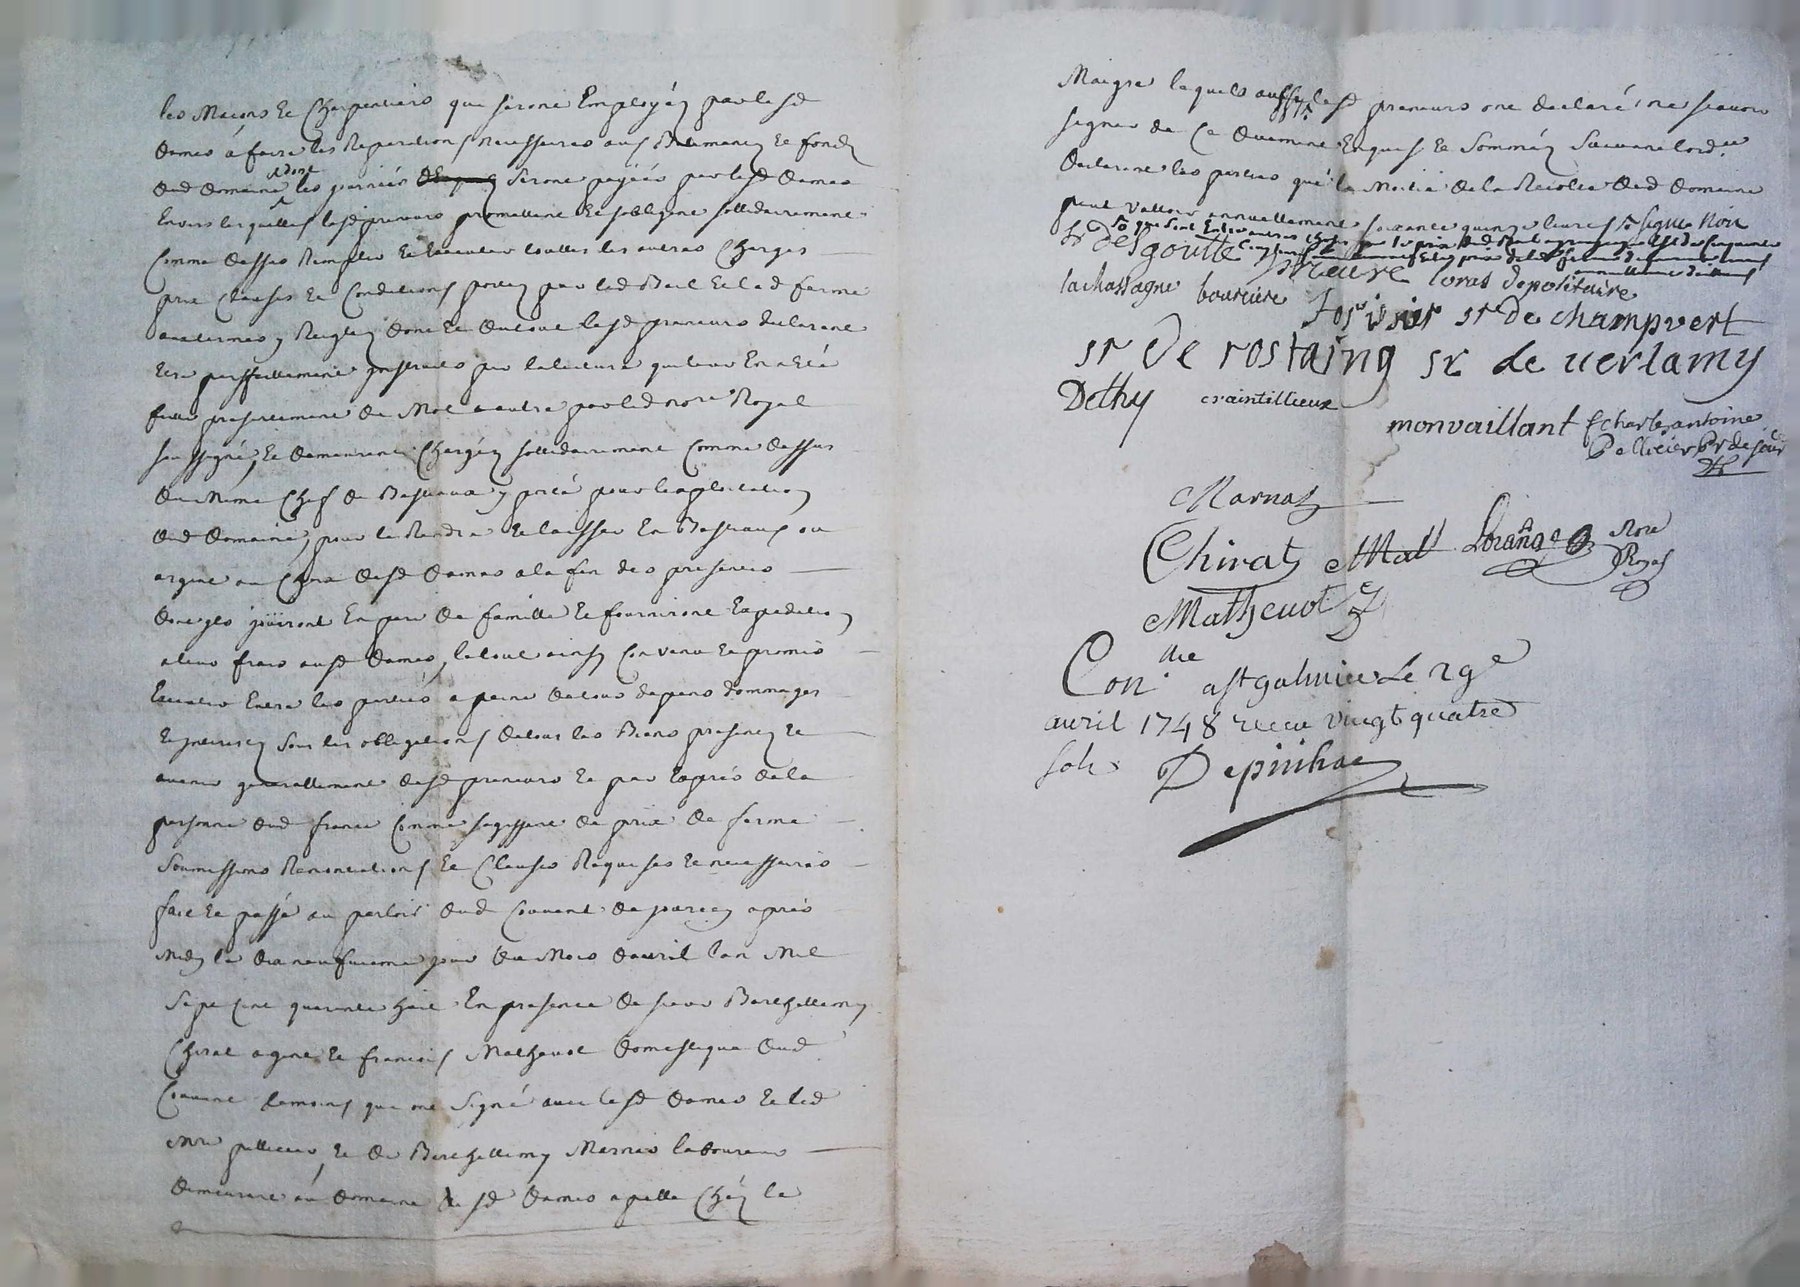 les Maçons et Charpentiers qui seront Employéz par lesd
dames á faire les Reparations necessaires aux Batimentz et fondz
dud domaine et dont les journées seront payées par lesd dames
Envers lesquelles lesd preneurs promettent et sobligent sollidairement
Comme dessus Remplir et Executer touttes les autres Charges
prix Clauses et Conditions portez par led Bail et lad ferme
dont et du tout lesd preneurs declarent
Etre parffaittement instruits par la lecture qui leur En a Eté
faitte presentement de Mot a autre par led nore Royal
soussigné, et demeurent Chargéz sollidairement Comme dessus
du Meme Chef de Bestiaux y porté pour lexploitation
dud domaine, pour le Rendre et laisser En Bestiaux ou
argent au Choix desd dames a la fin des presentes
dont ils joüiront En pere de famille et fourniront Expedition
a leur frais ausd dames, le tout ainsy Convenu et promis
Executer Entre les parties a peine de tous depens dommages
et interestz sous les obligations de tous les Biens presentz et
avenir generallement desd preneurs et par Exprés de la
personne dud france Comme sagissant de prix de ferme
Soumissions Renonciations et Clauses Requises et necessaires
fait et passé au parloir dud Couvent de jourcey aprés
Midy le dix neufvieme jour du Mois davril lan Mil
Sept Cent quarante huit En presence de sieur Barthellemy
Chirat agent et francois Mathevot domestique dud
Couvent temoins qui ont Signé avec lesd dames et led
Mre pellicier, et de Barthellemy Marnas laboureur
demeurant au domaine desd dames apellé Chéz le
Maigre lequels aussy lesd preneurs ont declaré ne scavoir
signer de Ce duement Enquis et Sommés Suivant lord.ce
declarent les parties que la Moitié de la Recolte dud domaine
peut valloir annuellement soixante quinze livres Signe Non
Sr Desgoutte prieure loras depolitaire
la chassagne boursiere sr De champvert
sr De rostaing sr de verlamy
Dethy craintillieux
monvaillant f charles antoine
Pellicier Pr de jour
Marnas
Chirat Nore
Royal
Mathevot
Con. lle a st galmier Le 29e
avril 1748 recu vingt quatre
sols Depinhac